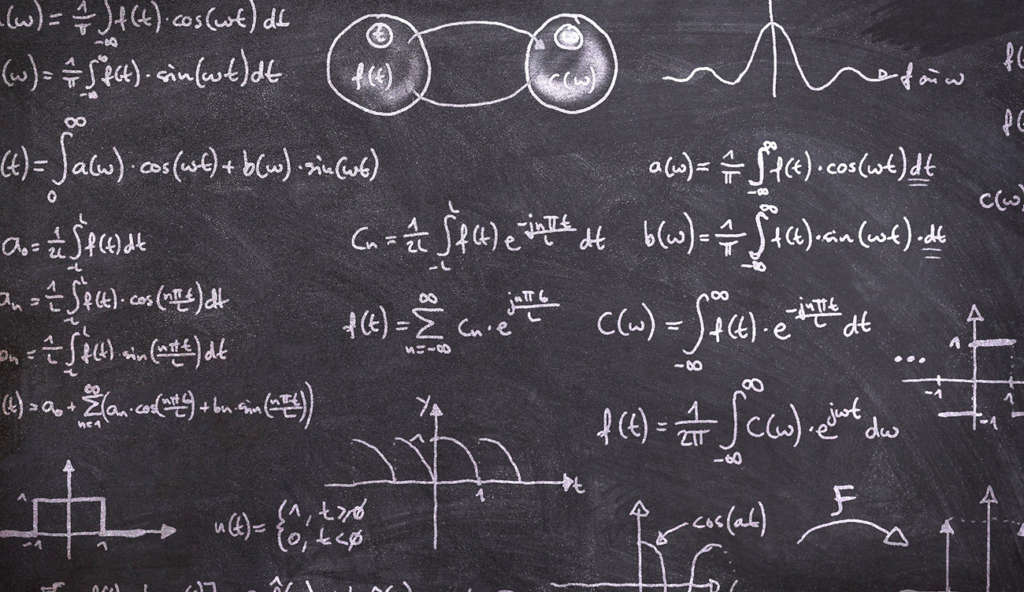 (ω) = 1/π ∫_{-∞} f(t)·cos(ωt) dt
(ω) = 1/π ∫_{-∞}^{∞} f(t)·sin(ωt) dt
t
f(t)
C(ω)
f sin ω
(t) = ∫_{0}^{∞} a(ω)·cos(ωt) + b(ω)·sin(ωt)
a(ω) = 1/π ∫_{-∞}^{∞} f(t)·cos(ωt) dt
C(ω)
a₀ = 1/2L ∫_{-L}^{L} f(t) dt
Cn = 1/2L ∫_{-L}^{L} f(t) e^{-jnπt/L} dt
b(ω) = 1/π ∫_{-∞}^{∞} f(t)·sin(ωt)·dt
an = 1/L ∫_{-L}^{L} f(t)·cos(nπt/L) dt
f(t) = ∑_{n=-∞}^{∞} Cn·e^{jnπt/L}
C(ω) = ∫_{-∞}^{∞} f(t)·e^{-jnπt/L} dt
bn = 1/L ∫_{-L}^{L} f(t)·sin(nπt/L) dt
...
1
-1
1
-1
(t) = a₀ + ∑_{n=1}^{∞} (an·cos(nπt/L) + bn·sin(nπt/L))
y
1
1
t
f(t) = 1/2π ∫_{-∞}^{∞} C(ω)·e^{jωt} dω
1
-1
1
u(t) = {1, t≥0
{0, t<0
cos(at)
F